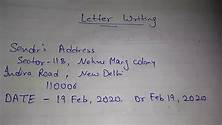 Letter Writing
Sendr's Address
Sector-118, Nehru Marg colony
Indira Road, New Delhi
110006
DATE - 19 Feb, 2020. Or Feb 19, 2020